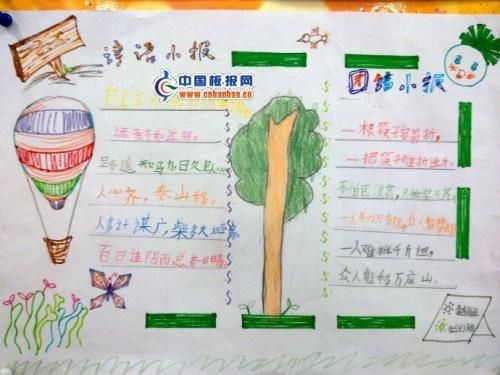 谚语小报
中国板报网
www.cnbanbao.cn
远亲不如近邻。
路遥知马力日久见人心
人心齐,泰山移。
人多计谋广,柴多火焰高。
百日连阴雨总有一日晴
团结小报
一根筷子容易折,
一把筷子难折断。
一人难挑千斤担,
众人能移万座山。